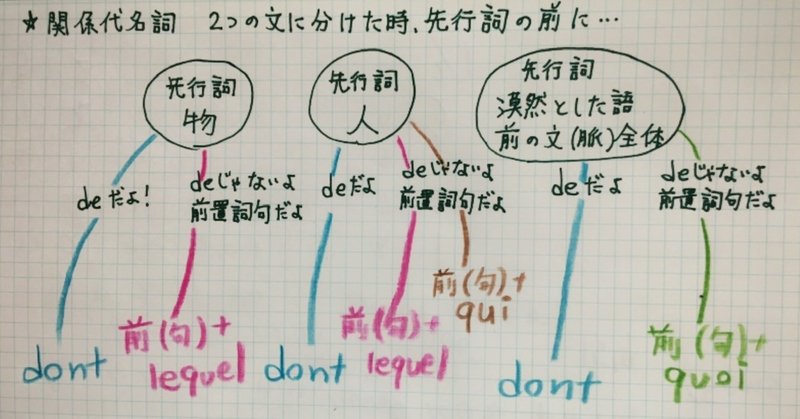 ☆関係代名詞 2つの文に分けた時、先行詞の前に…
先行詞
物
deだよ!
deじゃないよ
前置詞句だよ
dont
前(句)+
lequel
先行詞
人
deだよ
deじゃないよ
前置詞句だよ
dont
前(句)+
lequel
前(句)+
qui
先行詞
漠然とした語
前の文(脈)全体
deだよ
deじゃないよ
前置詞句だよ
dont
前(句)+
quoi